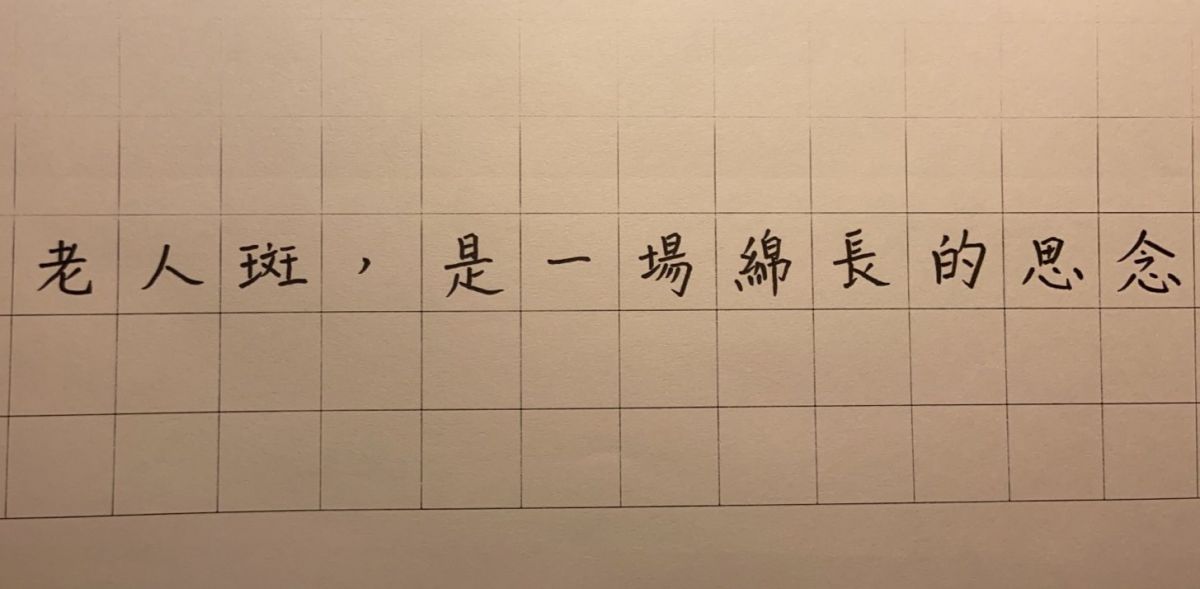 老人斑，是一場綿長的思念